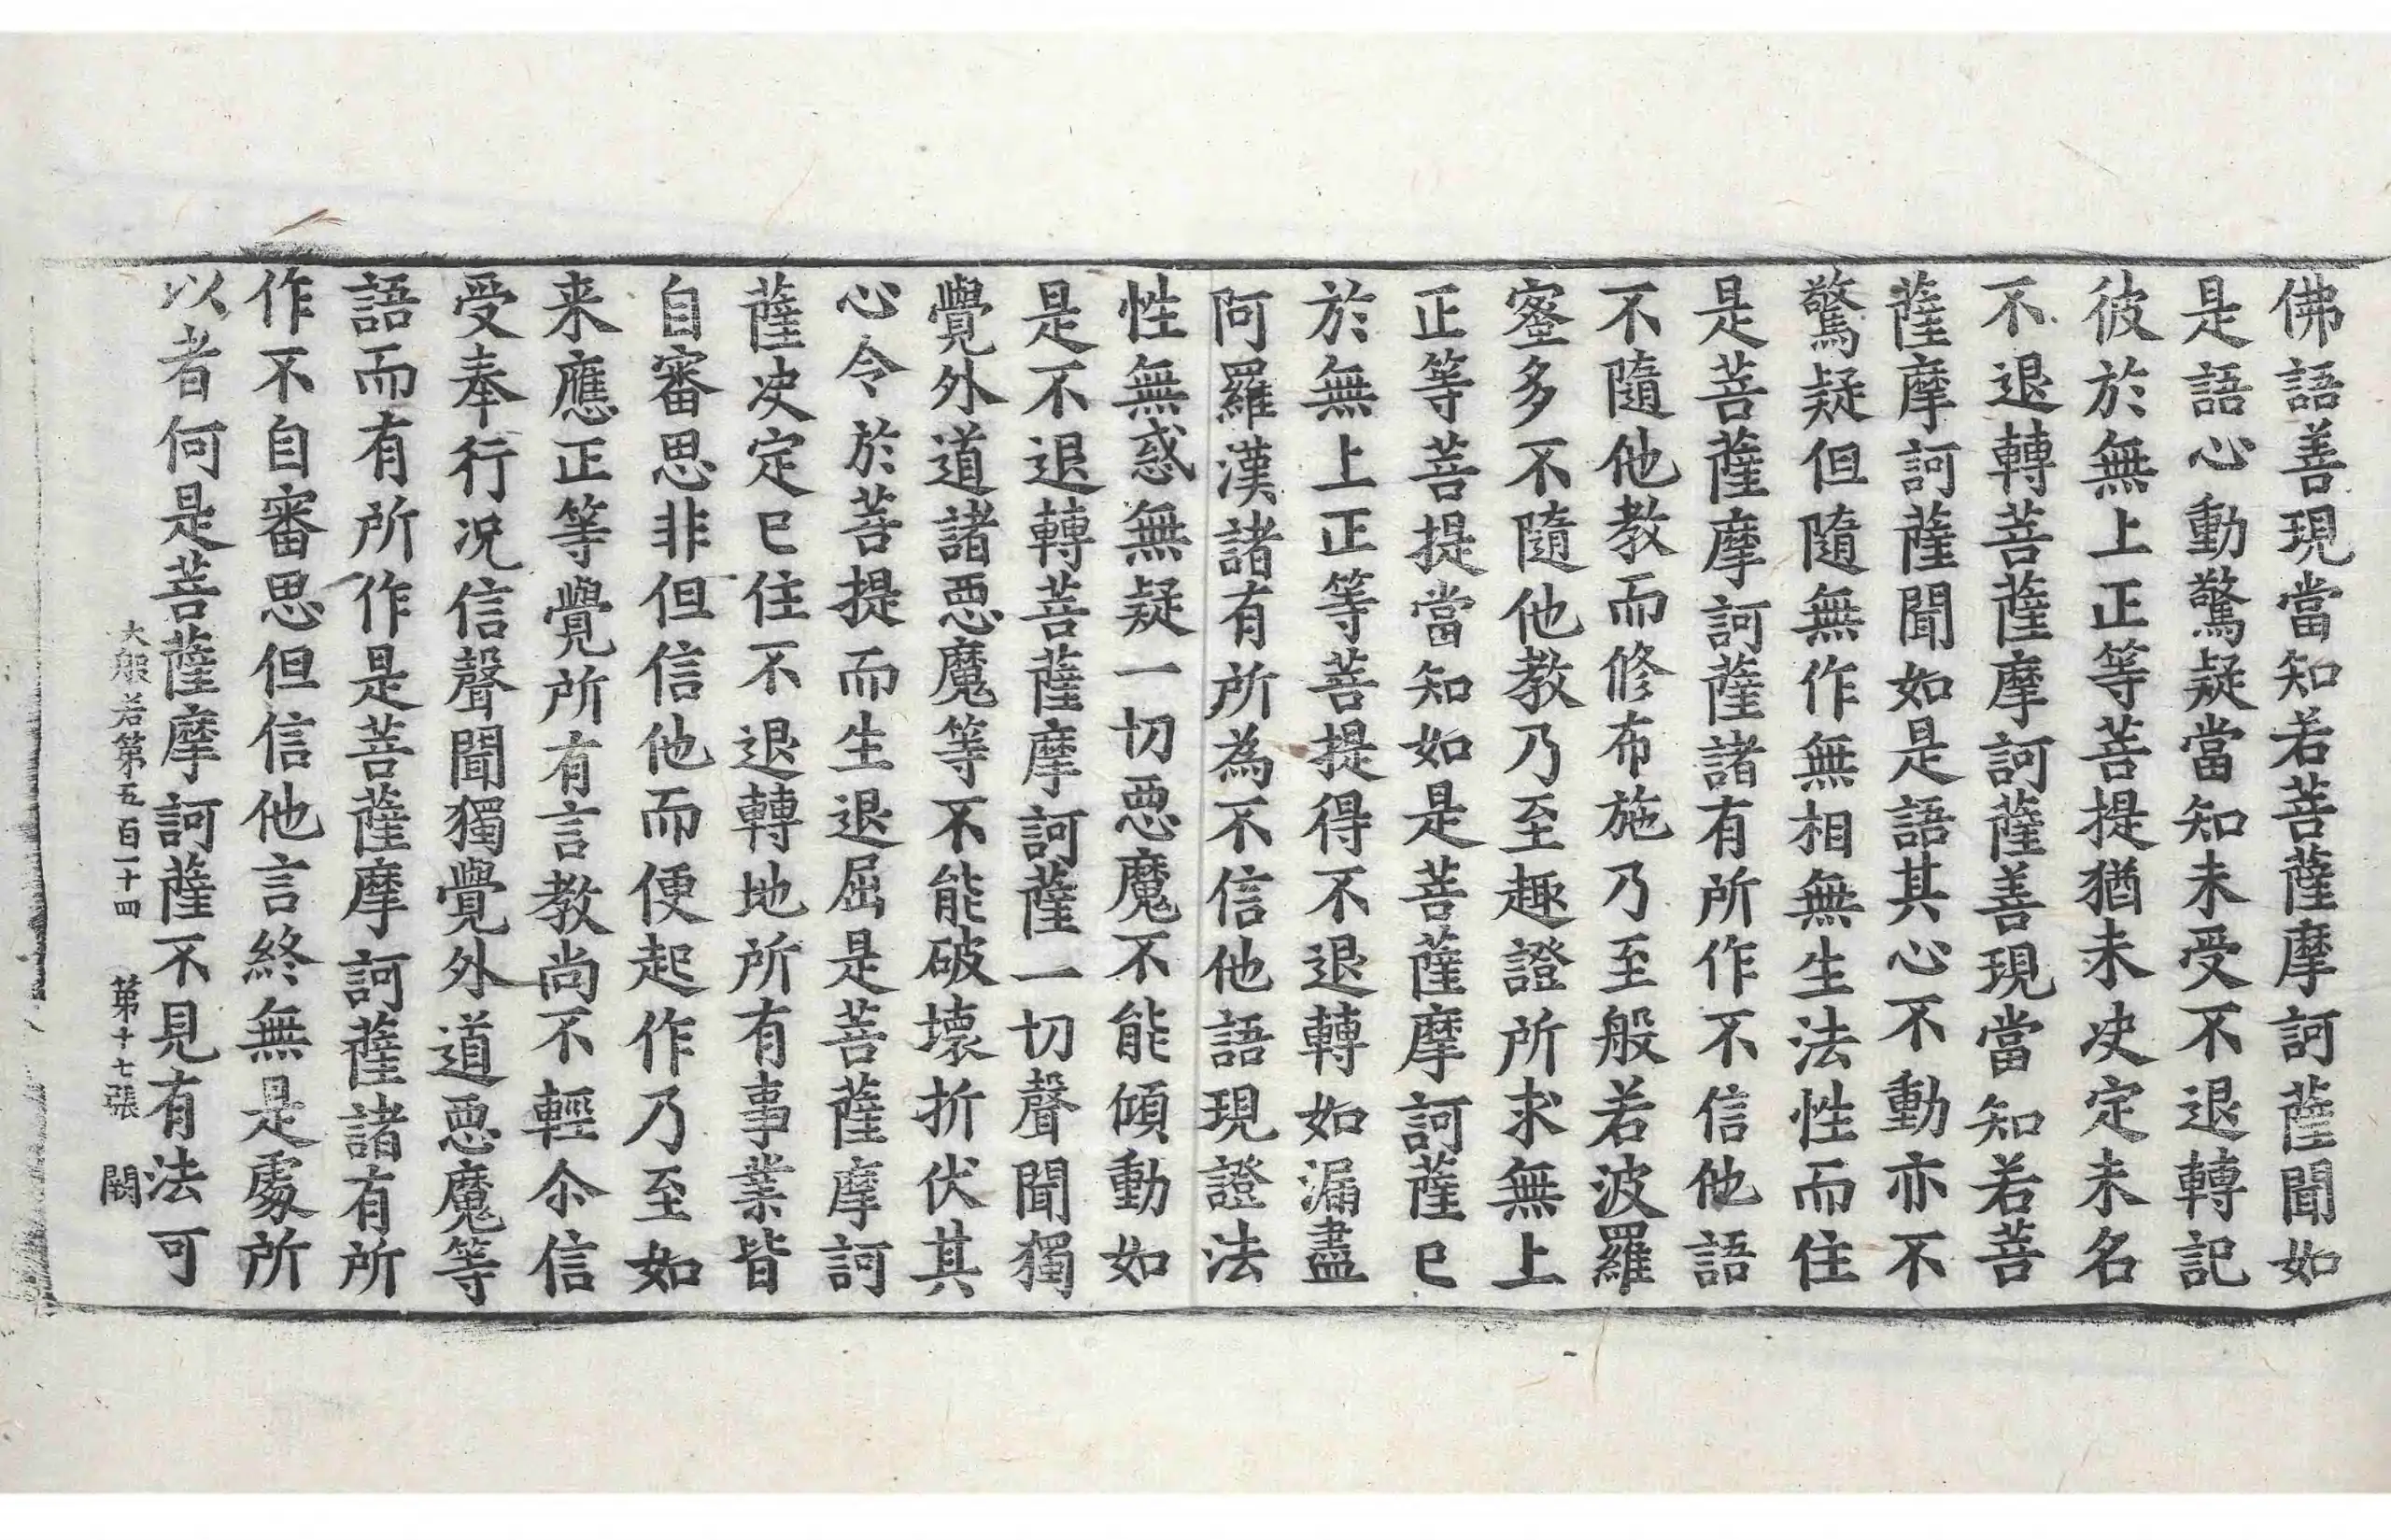 佛語善現當知若菩薩摩訶薩聞如
是語心動驚疑當知未受不退轉記
彼於無上正等菩提猶未决定未名
不退轉菩薩摩訶薩善現當知若菩
薩摩訶薩聞如是語其心不動亦不
驚疑但隨無作無相無生法性而住
是菩薩摩訶薩諸有所作不信他語
不隨他教而修布施乃至般若波羅
蜜多不隨他教乃至趣證所求無上
正等菩提當知如是菩薩摩訶薩已
於無上正等菩提得不退轉如漏盡
阿羅漢諸有所為不信他語現證法
性無惑無疑一切惡魔不能傾動如
是不退轉菩薩摩訶薩一切聲聞獨
覺外道諸惡魔等不能破壞折伏其
心令於菩提而生退屈是菩薩摩訶
薩决定已住不退轉地所有事業皆
自審思非但信他而便起作乃至如
来應正等覺所有言教尚不輕尒信
受奉行况信聲聞獨覺外道惡魔等
語而有所作是菩薩摩訶薩諸有所
作不自審思但信他言終無是處所
以者何是菩薩摩訶薩不見有法可
大般若第五百一十四 第十七張 闕